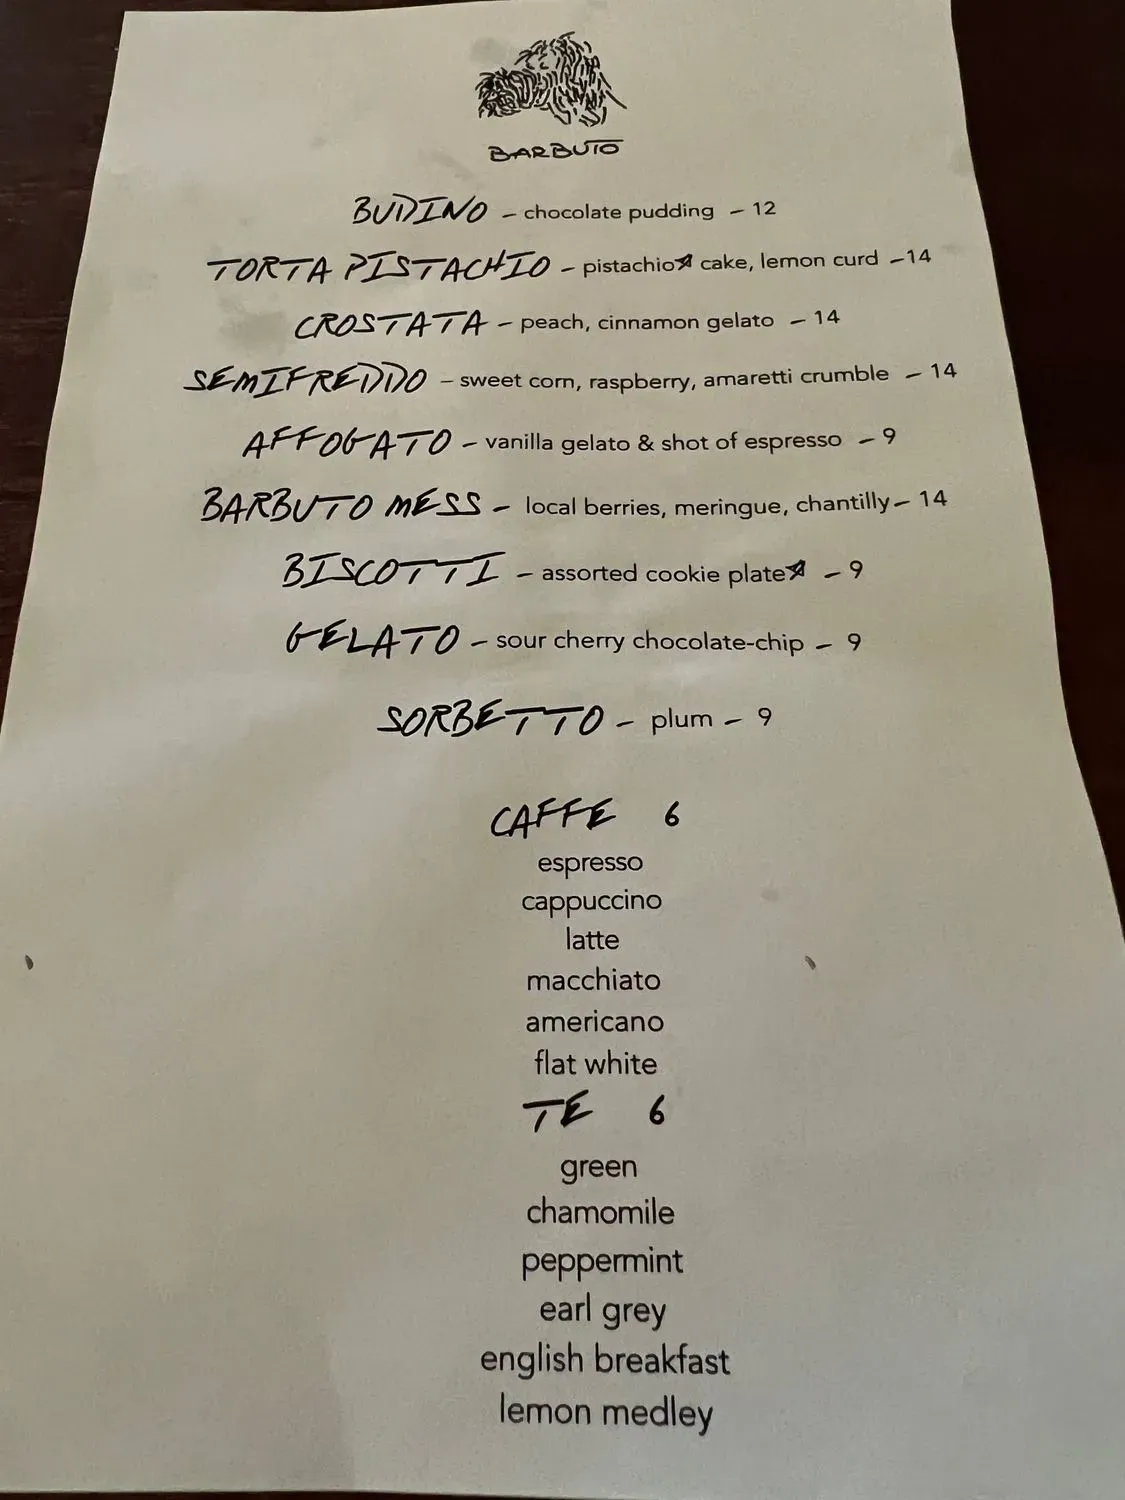 BARBUTO
BUDINO – chocolate pudding – 12
TORTA PISTACHIO – pistachio cake, lemon curd – 14
CROSTATA – peach, cinnamon gelato – 14
SEMIFREDDO – sweet corn, raspberry, amaretti crumble – 14
AFFOGATO – vanilla gelato & shot of espresso – 9
BARBUTO MESS – local berries, meringue, chantilly – 14
BISCOTTI – assorted cookie plate – 9
GELATO – sour cherry chocolate-chip – 9
SORBETTO – plum – 9
CAFFE 6
espresso
cappuccino
latte
macchiato
americano
flat white
TE 6
green
chamomile
peppermint
earl grey
english breakfast
lemon medley